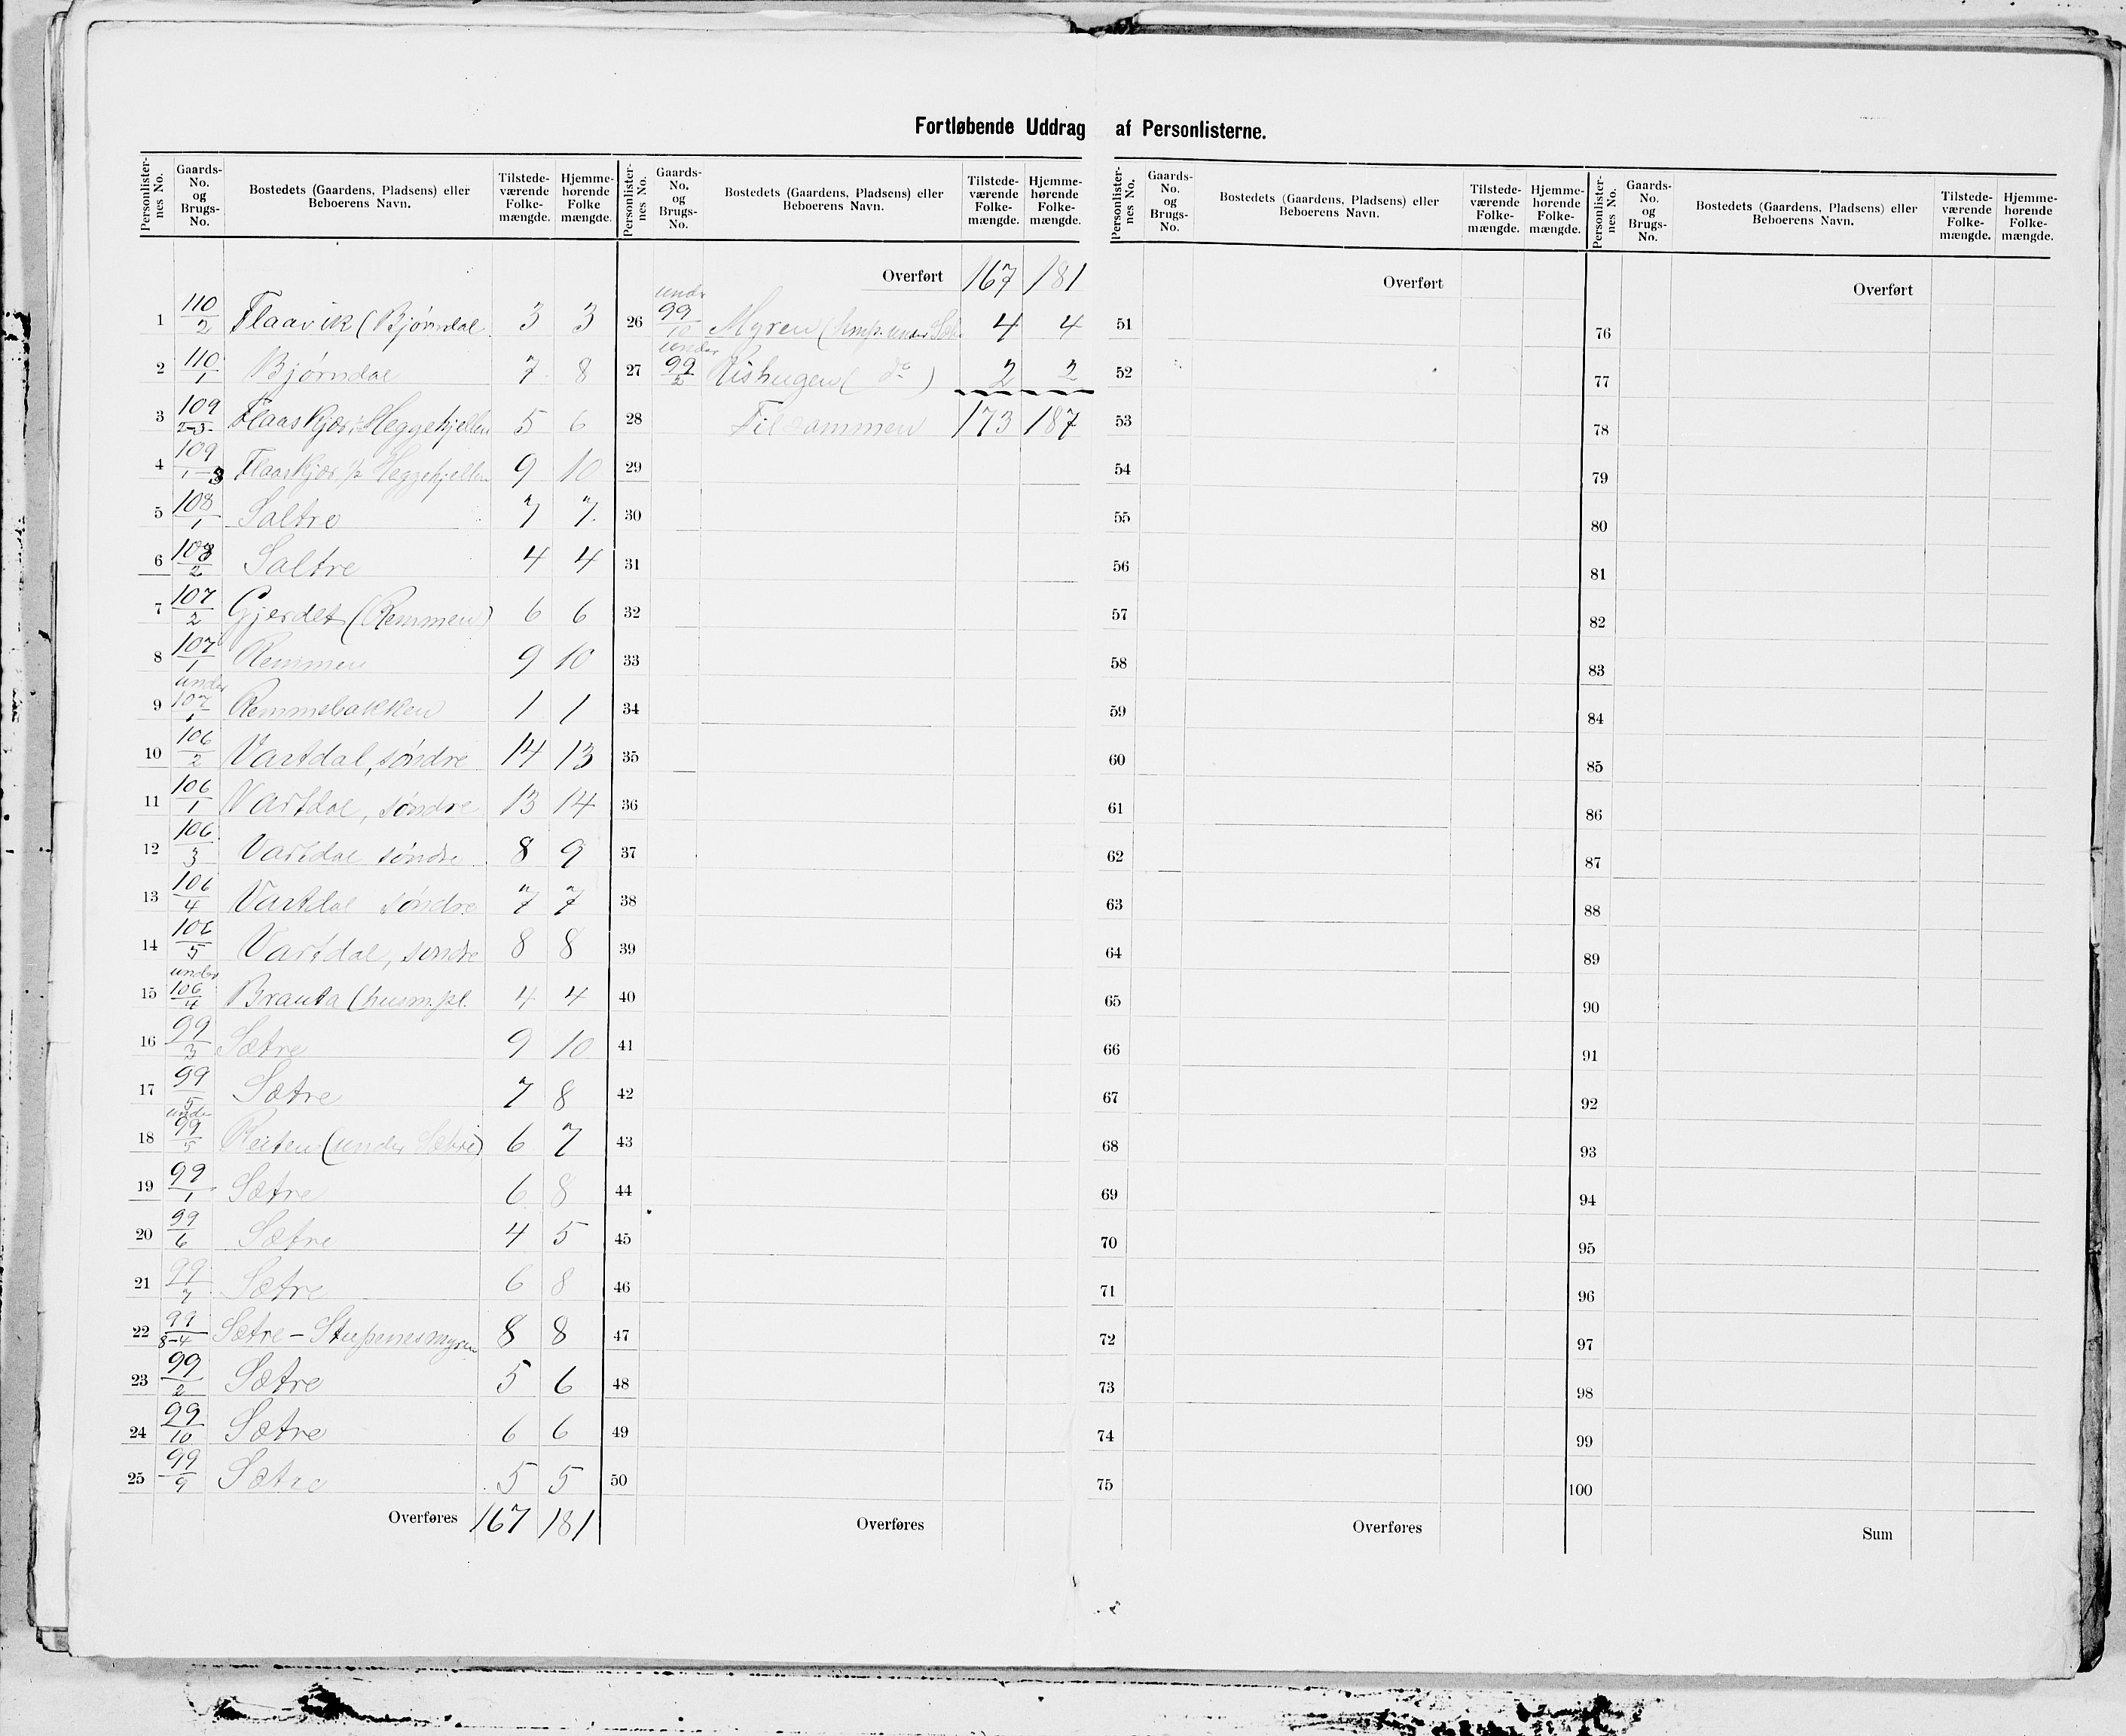 Fortløbende Uddrag af Personlisterne.
Personlisternes No. | Gaards-No. og Brugs-No. | Bostedets (Gaardens, Pladsens) eller Beboerens Navn. | Tilstedeværende Folkemængde. | Hjemmehørende Folkemængde.
1 110/2 Flaavik (Bjørndal 3 3
2 110/1 Bjørndal 7 8
3 109/2-3 Flaaskjær, Heggekjellen 5 6
4 109/1-3 Flaaskjær Heggekjellen 9 10
5 108/1 Saltre 7 7
6 108/2 Saltre 4 4
7 107/2 Gjerdet (Remmen) 6 6
8 107/1 Remmen 9 10
9 under 107/1 Remmebakken 1 1
10 106/2 Vartdal, søndre 14 13
11 106/1 Vartdal, søndre 13 14
12 106/3 Vartdal søndre 8 9
13 106/4 Vartdal søndre 7 7
14 106/5 Vartdal, søndre 8 8
15 under 106/4 Brauta (husm.pl. 4 4
16 99/3 Sætre 9 10
17 99/5 Sætre 7 8
18 under 99/5 Reiten (under Sætre) 6 7
19 99/1 Sætre 6 8
20 99/6 Sætre 4 5
21 99/7 Sætre 6 8
22 99/8-4 Sætre - Stupenesmyren 8 8
23 99/2 Sætre 5 6
24 99/10 Sætre 6 6
25 99/9 Sætre 5 5
Overføres 167 181
Personlisternes No. | Gaards-No. og Brugs-No. | Bostedets (Gaardens, Pladsens) eller Beboerens Navn. | Tilstedeværende Folkemængde. | Hjemmehørende Folkemængde.
Overført 167 181
26 under 99/10 Myren ( under 4 4
27 under 99/2 (do) 2 2
28 Tilsammen 173 187
29
30
31
32
33
34
35
36
37
38
39
40
41
42
43
44
45
46
47
48
49
50
Overføres
Personlisternes No. | Gaards-No. og Brugs-No. | Bostedets (Gaardens, Pladsens) eller Beboerens Navn. | Tilstedeværende Folkemængde. | Hjemmehørende Folkemængde.
Overført
51
52
53
54
55
56
57
58
59
60
61
62
63
64
65
66
67
68
69
70
71
72
73
74
75
Overføres
Personlisternes No. | Gaards-No. og Brugs-No. | Bostedets (Gaardens, Pladsens) eller Beboerens Navn. | Tilstedeværende Folkemængde. | Hjemmehørende Folkemængde.
Overført
76
77
78
79
80
81
82
83
84
85
86
87
88
89
90
91
92
93
94
95
96
97
98
99
100
Sum